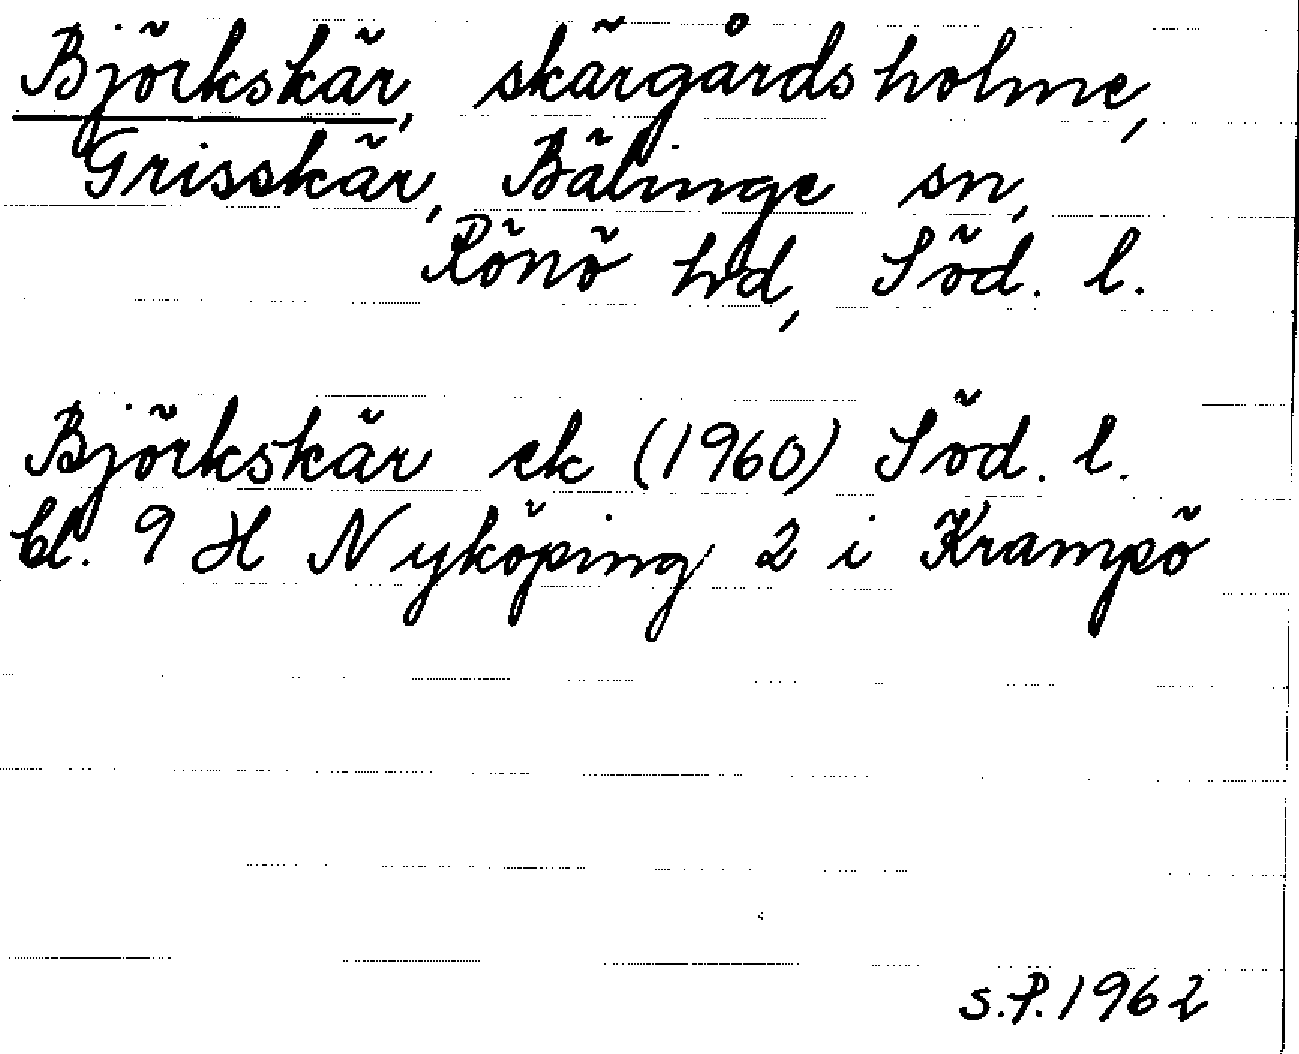 Björkskär, skärgårdsholme,
Grisskär, Bälinge sn,
Rönö hd, Söd. l.
Björkskär ek (1960) Söd. l.
bl. 9 H Nyköping 2 i Krampö
S.P. 1962